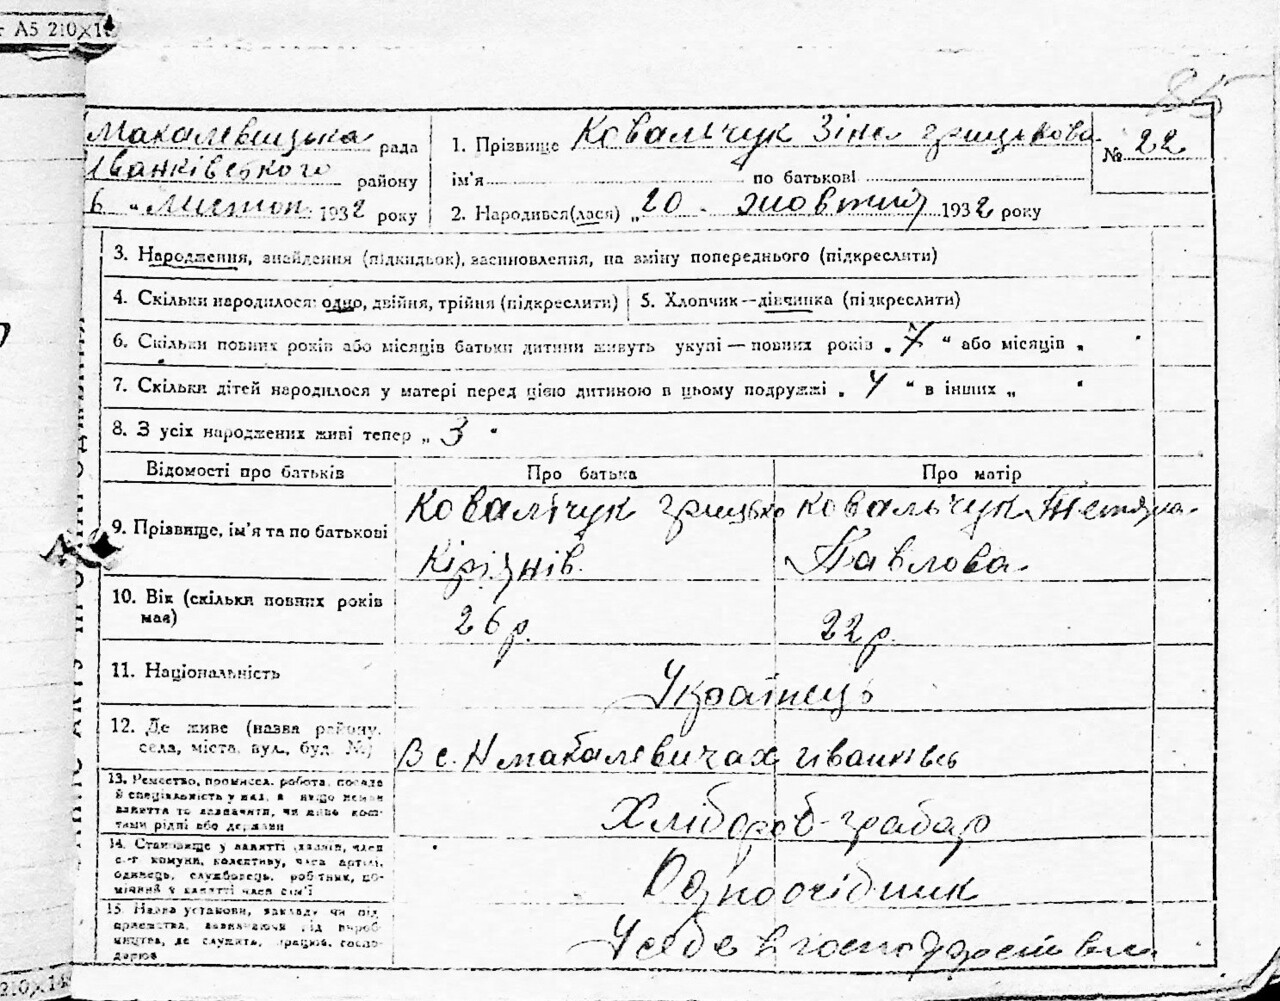 А5 210×1
85
Макалевицька рада
Іванківського району
6 „ листоп 1932 року
1. Прізвище Ковальчук Зіна Грицькова
ім'я по батькові
№ 22
2. Народився(лася) „20 жовтня 1932 року
3. Народження, знайдення (підкидьок), всиновлення, на зміну попереднього (підкреслити)
4. Скільки народилося: одно, двійня, трійня (підкреслити)
5. Хлопчик—дівчинка (підкреслити)
6. Скільки повних років або місяців батьки дитини живуть укупі — повних років „ 7 " або місяців „ "
7. Скільки дітей народилося у матері перед цією дитиною в цьому подружжі „ 4 " в інших „ "
8. З усіх народжених живі тепер „ 3 "
Відомості про батьків
Про батька
Про матір
9. Прізвище, ім'я та по батькові
Ковальчук Грицько
Ковальчук Тетяна
Павлова
10. Вік (скільки повних років
має)
26 р.
22 р.
11. Національність
Українець
12. Де живе (назва району,
села, міста, вул., буд. №)
В с. Н Макалевичах Іванківсь
13. Ремество, промисел, робота, посада
й спеціальність у них, а якщо немає
заняття то зазначити, чи живе кош-
тами рідні або держави
Хлібороб-грабар
14. Становище у занятті (хазяїн, член
с.-г. комуни, колективу, член артілі,
одинець, службовець, робітник, до-
мічний у занятті член сім'ї
Одноосібник
15. Назва установи, закладу чи під
приємства, зазначаючи рід вироб
ництва, де служить, працює, госпо-
дарює
У себе в господарстві
210×148